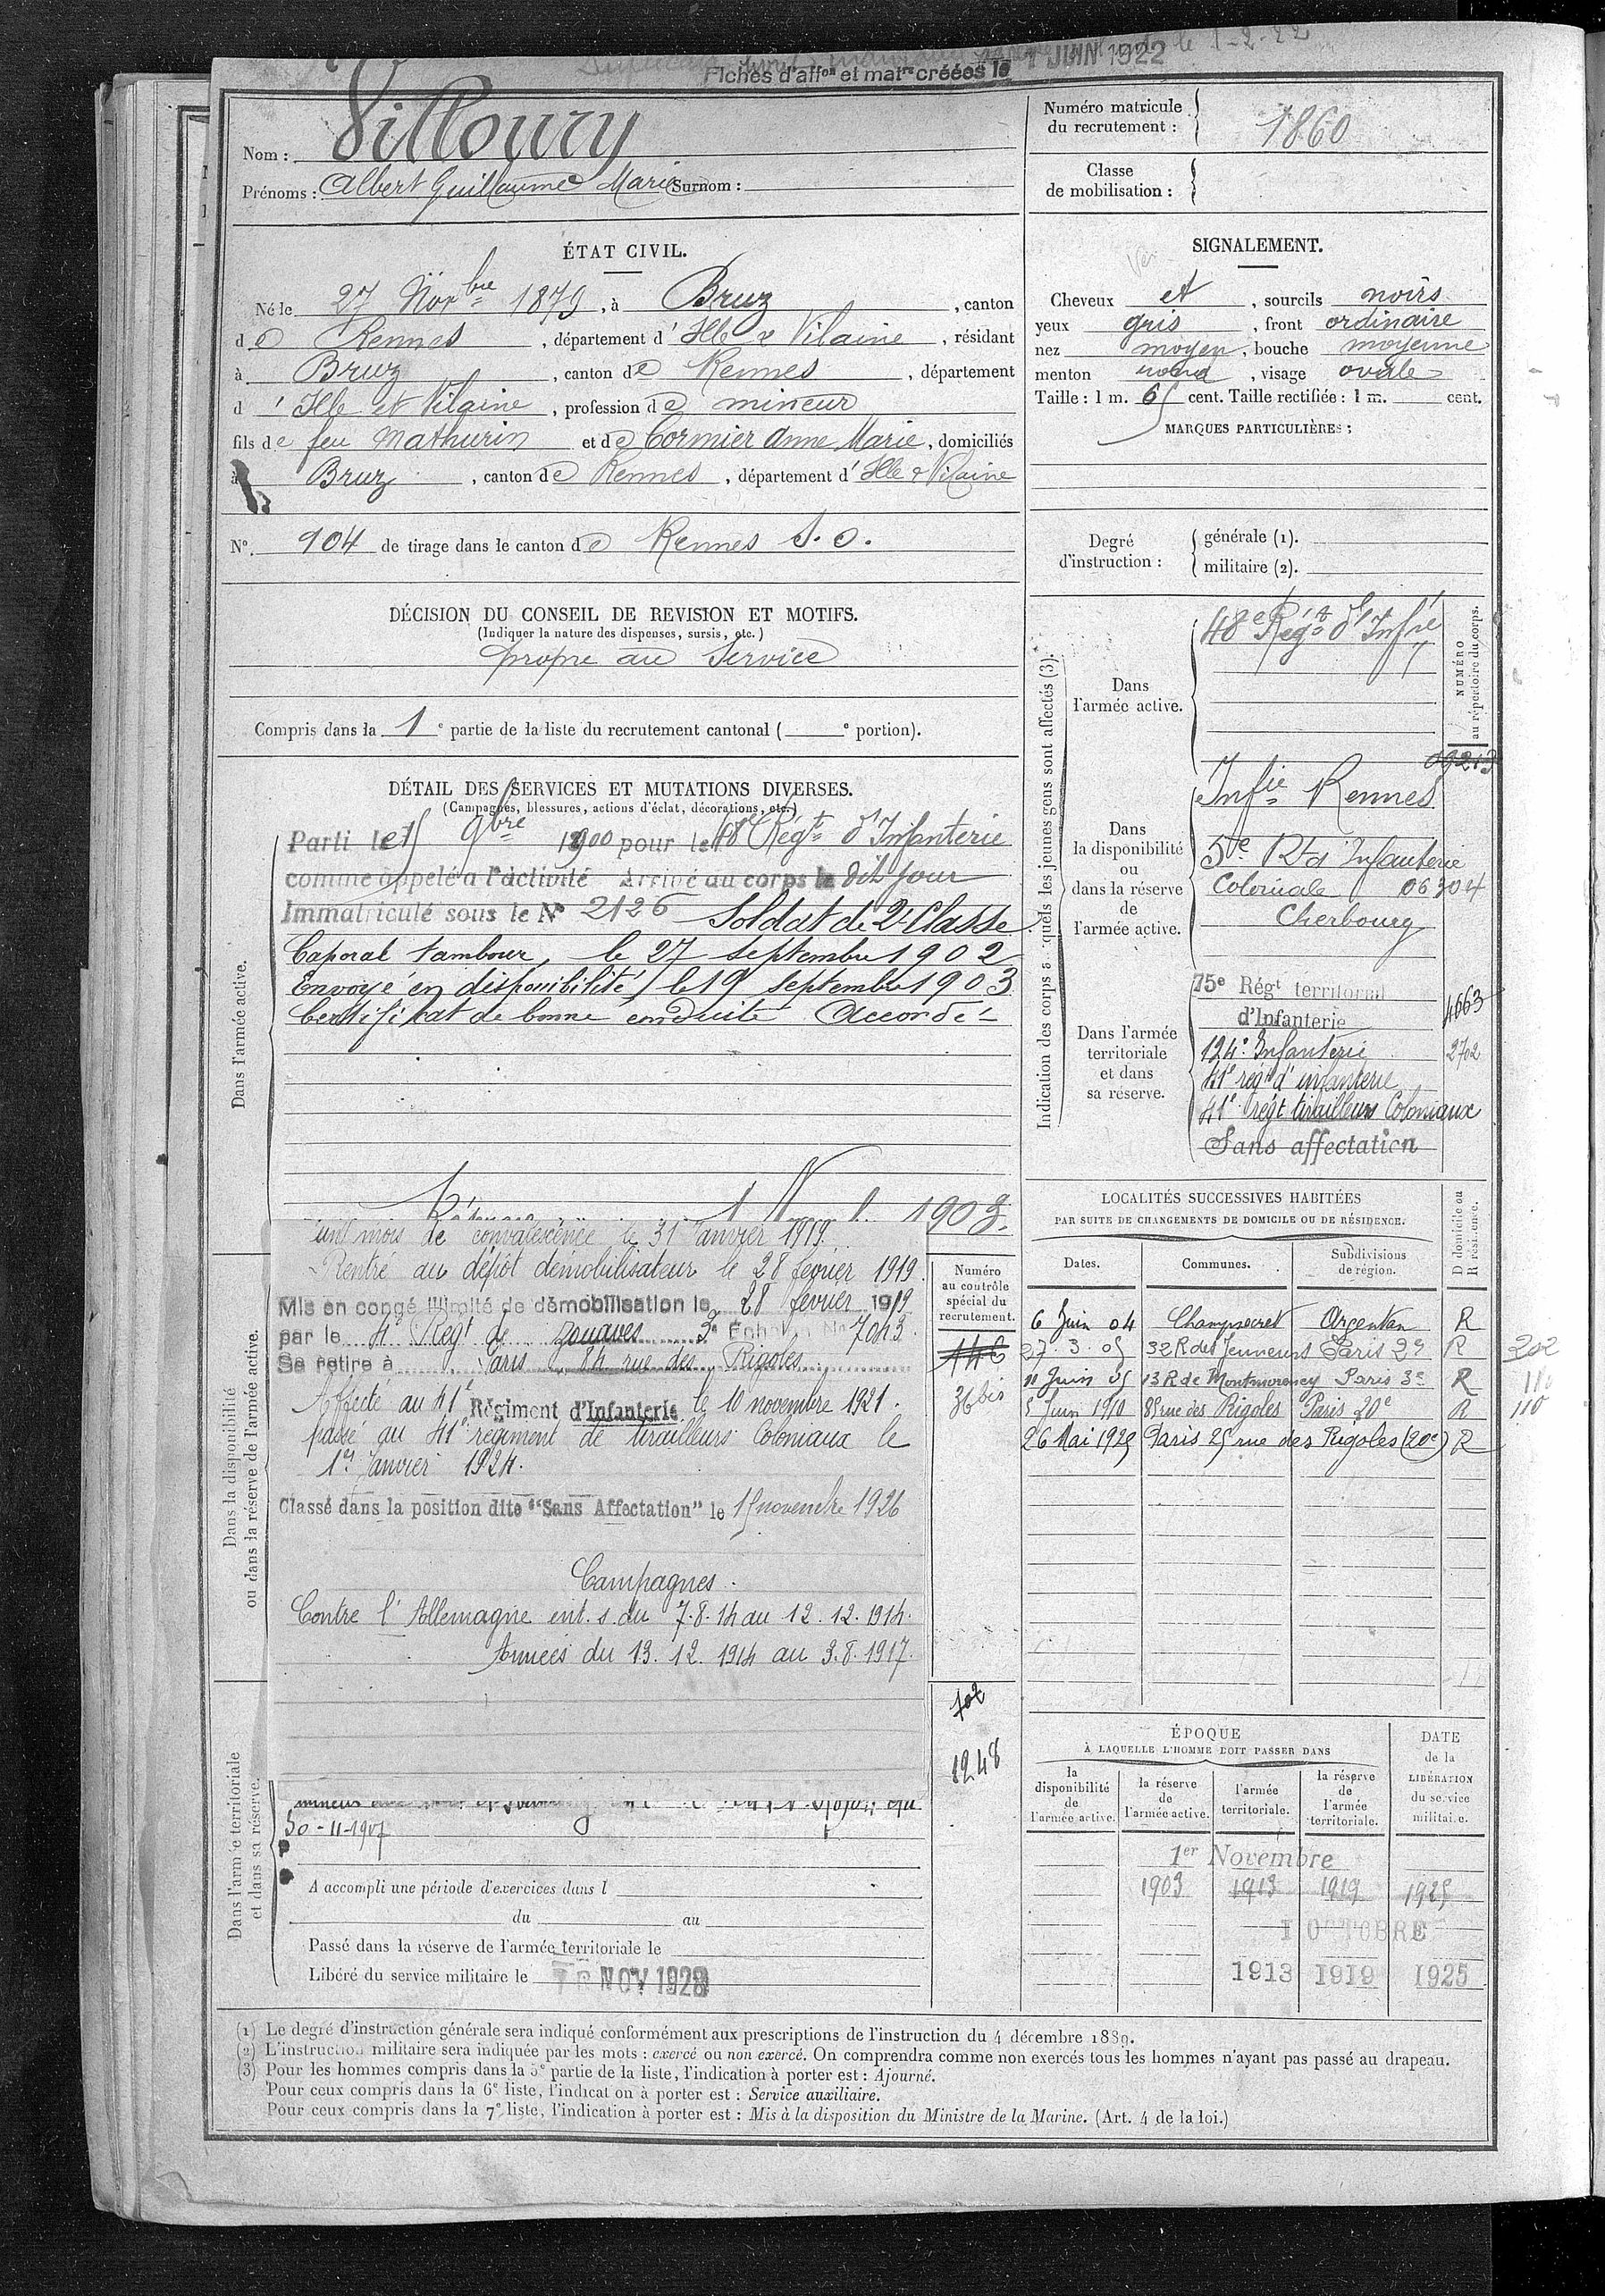 Fiches d'affon et matre créées le 1 JUIN 1922
Nom : Villoury
Prénoms : Albert Guillaume Marie Surnom :
Numéro matricule du recrutement : 1860
Classe de mobilisation :
ÉTAT CIVIL.
Né le 27 Novbre 1879, à Bruz, canton
de Rennes, département d'Ille & Vilaine, résidant
à Bruz, canton de Rennes, département
d'Ille et Vilaine, profession de mineur
fils de feu Mathurin et de Cormier Anne Marie, domiciliés
à Bruz, canton de Rennes, département d'Ille & Vilaine
N°. 104 de tirage dans le canton de Rennes S.O.
SIGNALEMENT.
Cheveux et, sourcils noirs
yeux gris, front ordinaire
nez moyen, bouche moyenne
menton rond, visage ovale
Taille : 1 m. 65 cent. Taille rectifiée : 1 m. cent.
MARQUES PARTICULIÈRES :
Degré d'instruction : générale (1).
militaire (2).
DÉCISION DU CONSEIL DE REVISION ET MOTIFS.
(Indiquer la nature des dispenses, sursis, etc.)
propre au Service
Compris dans la 1e partie de la liste du recrutement cantonal ( e portion).
DÉTAIL DES SERVICES ET MUTATIONS DIVERSES.
(Campagnes, blessures, actions d'éclat, décorations, etc.)
Dans l'armée active.
Parti le 15 9bre 1900 pour le 48e Régt d'Infanterie
comme appelé à l'activité Arrivé au corps le dit jour
Immatriculé sous le N° 2126 Soldat de 2e Classe
Caporal tambour, le 27 septembre 1902
Envoyé en disponibilité le 19 septembre 1903
Certificat de bonne conduite Accordé
1903.
Dans la disponibilité ou dans la réserve de l'armée active.
un mois de convalescence le 31 Janvier 1919.
Rentré au dépôt démobilisateur le 28 février 1919.
Mis en congé illimité de démobilisation le 28 février 1919
par le 4e Régt de zouaves 3e Echelon No 7043.
Se retire à Paris 84 rue des Rigoles
Affecté au 41e Régiment d'Infanterie le 10 novembre 1921.
passé au 41e régiment de tirailleurs Coloniaux le
1er Janvier 1924.
Classé dans la position dite "Sans Affectation" le 15 novembre 1926
Campagnes.
Contre l'Allemagne int. s. du 7.8.14 au 12.12.1914.
Armées du 13.12.1914 au 3.8.1917.
Numéro au contrôle spécial du recrutement.
146
36 bis
702
1248
Dans l'armée territoriale et dans sa réserve.
30-11-1907
A accompli une période d'exercices dans l
du au
Passé dans la réserve de l'armée territoriale le
Libéré du service militaire le NOV 1928
Indication des corps auxquels les jeunes gens sont affectés (3).
NUMÉRO au répertoire du corps.
Dans l'armée active.
48e Régt d'Infie
Dans la disponibilité ou dans la réserve de l'armée active.
Infie Rennes
5e Rt d'Infanterie
Coloniale 06304
Cherbourg
Dans l'armée territoriale et dans sa réserve.
75e Régt territorial
d'Infanterie 4663
124e Infanterie 2702
41e régt d'infanterie
41e régt tirailleurs Coloniaux
Sans affectation
LOCALITÉS SUCCESSIVES HABITÉES
PAR SUITE DE CHANGEMENTS DE DOMICILE OU DE RÉSIDENCE.
Dates. Communes. Subdivisions de région. D domicile ou R résidence.
6 Juin 04 Champsecret Argentan R
27.3.05 32 R des Jeuneurs Paris 2e R 202
11 Juin 05 13 R de Montmorency Paris 3e R 110
5 Juin 1910 85 rue des Rigoles Paris 20e R 110
26 Mai 1925 Paris 25 rue des Rigoles (20e) R
ÉPOQUE
À LAQUELLE L'HOMME DOIT PASSER DANS
la disponibilité de l'armée active.
la réserve de l'armée active.
l'armée territoriale.
la réserve de l'armée territoriale.
DATE de la LIBÉRATION du service militaire.
1er Novembre
1903 1913 1919 1925
1 OCTOBRE
1913 1919 1925
(1) Le degré d'instruction générale sera indiqué conformément aux prescriptions de l'instruction du 4 décembre 1889.
(2) L'instruction militaire sera indiquée par les mots : exercé ou non exercé. On comprendra comme non exercés tous les hommes n'ayant pas passé au drapeau.
(3) Pour les hommes compris dans la 5e partie de la liste, l'indication à porter est : Ajourné.
Pour ceux compris dans la 6e liste, l'indication à porter est : Service auxiliaire.
Pour ceux compris dans la 7e liste, l'indication à porter est : Mis à la disposition du Ministre de la Marine. (Art. 4 de la loi.)